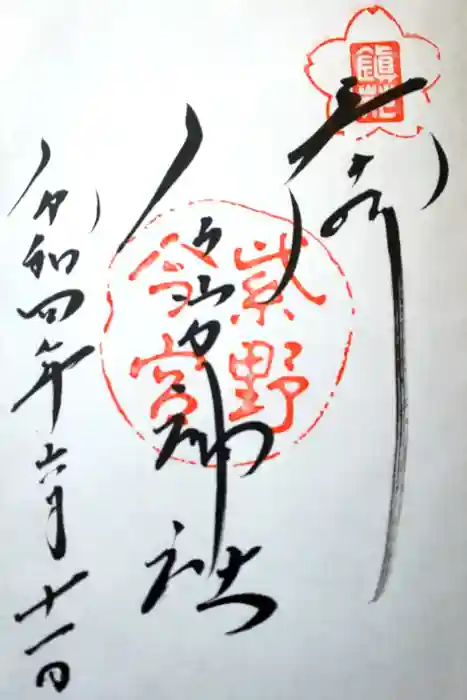 奉拝
鎮花
今宮神社
紫野
今宮
令和四年六月十一日